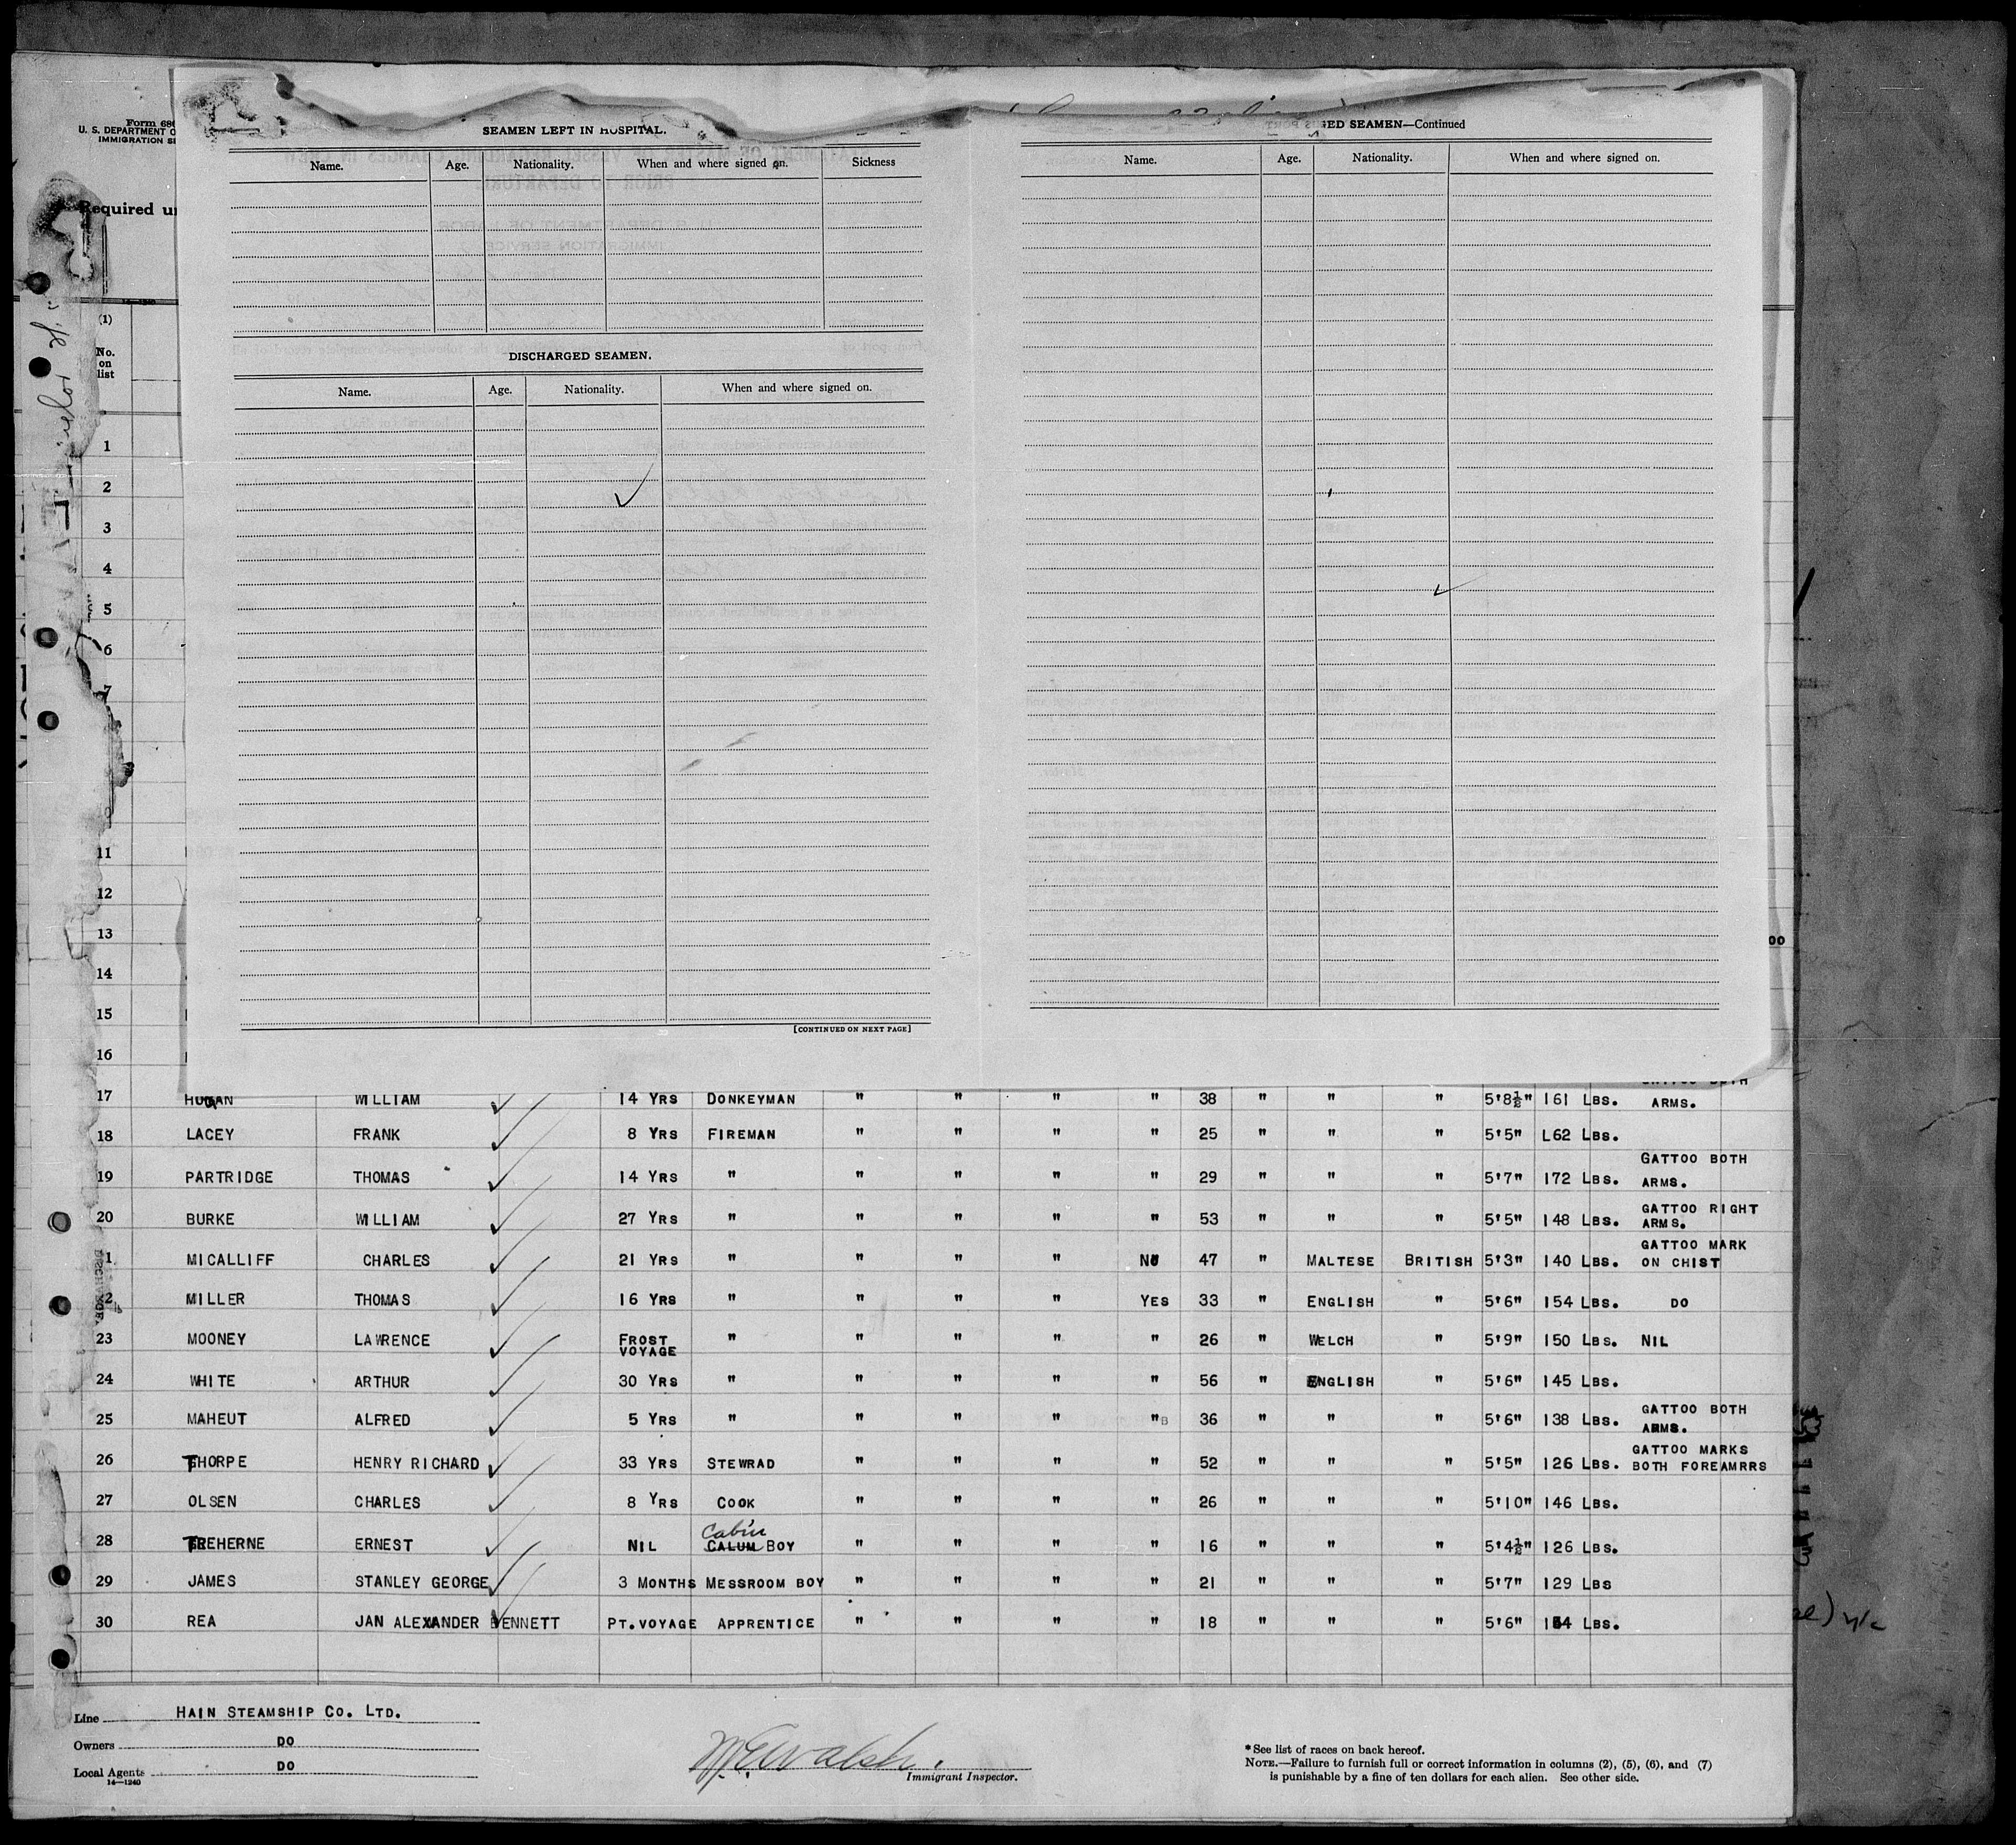 Form 680
U. S. DEPARTMENT O
IMMIGRATION SE
Required un
SEAMEN LEFT IN HOSPITAL.
Name. Age. Nationality. When and where signed on. Sickness
DISCHARGED SEAMEN.
Name. Age. Nationality. When and where signed on.
[CONTINUED ON NEXT PAGE]
GED SEAMEN—Continued
Name. Age. Nationality. When and where signed on.
(1)
No.
on
list
1
2
3
4
5
6
7
11
12
13
14
15
16
00
17 HOGAN WILLIAM 14 YRS DONKEYMAN " " " " 38 " " " 5'8½" 161 LBS. ARMS.
18 LACEY FRANK 8 YRS FIREMAN " " " " 25 " " " 5'5" L62 LBS.
19 PARTRIDGE THOMAS 14 YRS " " " " " 29 " " " 5'7" 172 LBS. GATTOO BOTH ARMS.
20 BURKE WILLIAM 27 YRS " " " " " 53 " " " 5'5" 148 LBS. GATTOO RIGHT ARMS.
1 MICALLIFF CHARLES 21 YRS " " " " NO 47 " MALTESE BRITISH 5'3" 140 LBS. GATTOO MARK ON CHIST
2 MILLER THOMAS 16 YRS " " " " YES 33 " ENGLISH " 5'6" 154 LBS. DO
23 MOONEY LAWRENCE FROST VOYAGE " " " " " 26 " WELCH " 5'9" 150 LBS. NIL
24 WHITE ARTHUR 30 YRS " " " " " 56 " ENGLISH " 5'6" 145 LBS.
25 MAHEUT ALFRED 5 YRS " " " " "B 36 " " " 5'6" 138 LBS. GATTOO BOTH ARMS.
26 THORPE HENRY RICHARD 33 YRS STEWRAD " " " " 52 " " " 5'5" 126 LBS. GATTOO MARKS BOTH FOREAMRRS
27 OLSEN CHARLES 8 YRS COOK " " " " 26 " " " 5'10" 146 LBS.
28 TREHERNE ERNEST NIL Cabin CALUM BOY " " " " 16 " " " 5'4½" 126 LBS.
29 JAMES STANLEY GEORGE 3 MONTHS MESSROOM BOY " " " " 21 " " " 5'7" 129 LBS
30 REA JAN ALEXANDER BENNETT PT. VOYAGE APPRENTICE " " " " 18 " " " 5'6" 154 LBS.
Line HAIN STEAMSHIP CO. LTD.
Owners DO
Local Agents DO
14—1240
Immigrant Inspector.
*See list of races on back hereof.
NOTE.—Failure to furnish full or correct information in columns (2), (5), (6), and (7)
is punishable by a fine of ten dollars for each alien. See other side.